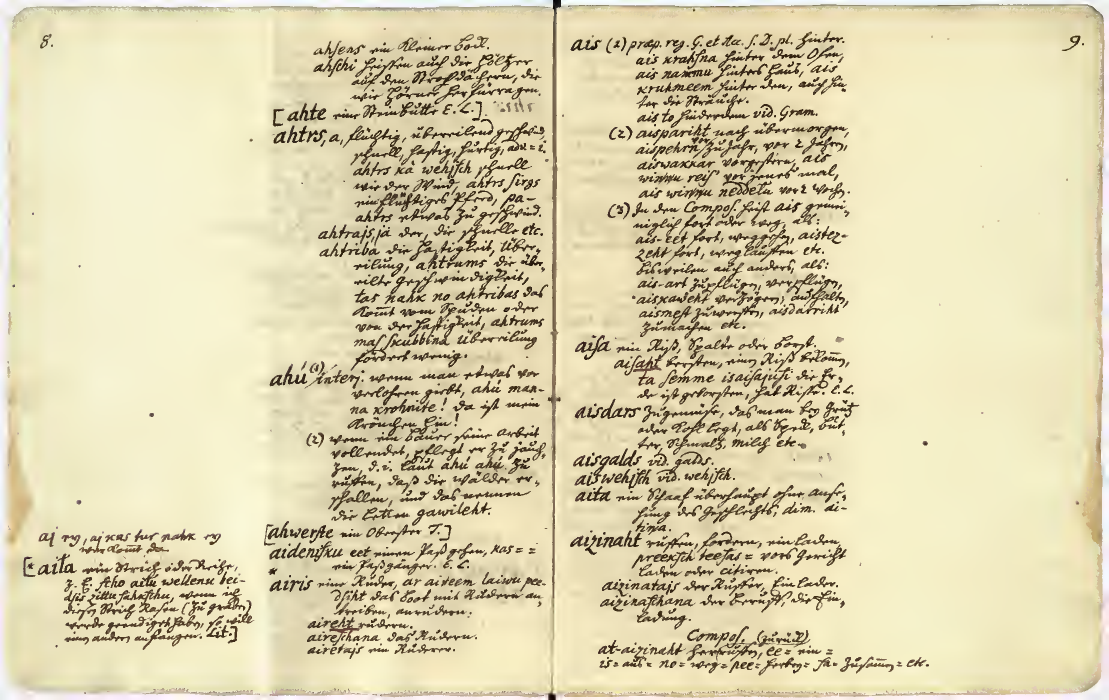 8.
ahsens ein kleiner bock.
ahschi heissen auch die Höltzer
auf den Strohdächern, die
wie Hörner herfürragen.
[ahte eine Steinbutte E. L.]
ahtrs, a, flüchtig, übereilend geschwind
schnell, hastig, hürtig, adv = i
ahtrs kà wehjsch schnell
wie der Wind, ahtrs sirgs
ein flüchtiges Pferd, pa-
ahtrs etwas zu geschwind.
ahtrajs, ja der, die schnelle etc.
ahtriba die Hastigkeit, Über-
eilung, ahtrums die übe-
reilte geschwindigkeit,
tas nahk no ahtribas das
komt vom Spuden oder
von der Hastigkeit, ahtrums
mas skubbina Übereilung
fördert wenig.
ahú (1) Interj. wenn man etwas vor
verlohren giebt, ahú man-
na krohnite! da ist mein
Krönchen hin!
(2) wenn ein bauer seine Arbeit
vollendet, pflegt er zu jauch-
zen, d. i. laut ahú ahú zu
ruffen, daß die wälder er-
schallen, und das nennen
die Letten gawileht.
[ahwerste ein Oberster T.]
aidenisku eet einen Paß gehen, kas = =
ein Paßgänger. E. L.
*
airis eine Ruder, ar aireem laiwu pee-
dsiht das boot mit Rudern an-
treiben, anrudern.
aireht rudern.
aireschana das Rudern.
airetajs ein Ruderer.
aj ey, aj kas tur nahk ey
wer komt da
[* aita ein Strich oder Reihe,
z. E. scho aitu wellenu bei-
dsis zittu sahkschu, wenn ich
diesen Strich Rasen (zu graben)
werde geendiget haben, so will
einen andern anfangen. Lit.]
9.
ais (1) præp. reg. G. et Acc. s. D. pl. hinter.
ais krahsna hinter dem Ofen,
ais nammu hinters Haus, ais
kruhmeem hinter den, auch hin-
ter die Sträuche.
ais to hinderdem vid. Gram.
(2) aispariht nach übermorgen,
aispehrn zu Jahr, vor 2 Jahren,
aiswakkar vorgestern, ais
winnu reis vor jenes mal,
ais winnu neddelu vor 2 woch.
(3) In den Compos. heist ais gemei-
niglich fort oder weg, als:
ais-eet fort, weggehen, aistez-
zeht fort, weglauffen etc.
bisweilen auch anders, als:
ais-art zupflügen, verpflügen,
aiskaweht verzögern, aufhalten,
aismest zuwerffen, aisdarriht
zumachen etc.
aisa ein Riß, Spalte oder borst.
aisaht bersten, einen Riß bekomen,
ta semme isaisajusi die Er-
de ist geborsten, hat Risse. E. L.
aisdars Zugemüse, das man bey Grütz
oder Kohl legt, als Speck, but-
ter, Schmaltz, milch etc.
aisgalds vid. galds.
aiswehjsch vid. wehjsch.
aita ein Schaaf überhaupt ohne anse-
hung des Geschlechts, dim. ai-
tina.
aizinaht ruffen, fordern, einladen
preeksch teesas = vors Gericht
laden oder citiren.
aizinatajs der Ruffer, Einlader.
aizinaschana der beruff, die Ein-
ladung.
Compos. (zurück)
at-aizinaht herruffen, ee = ein =
is = aus = no = weg = pee = herbey = sa = zusamen = etc.